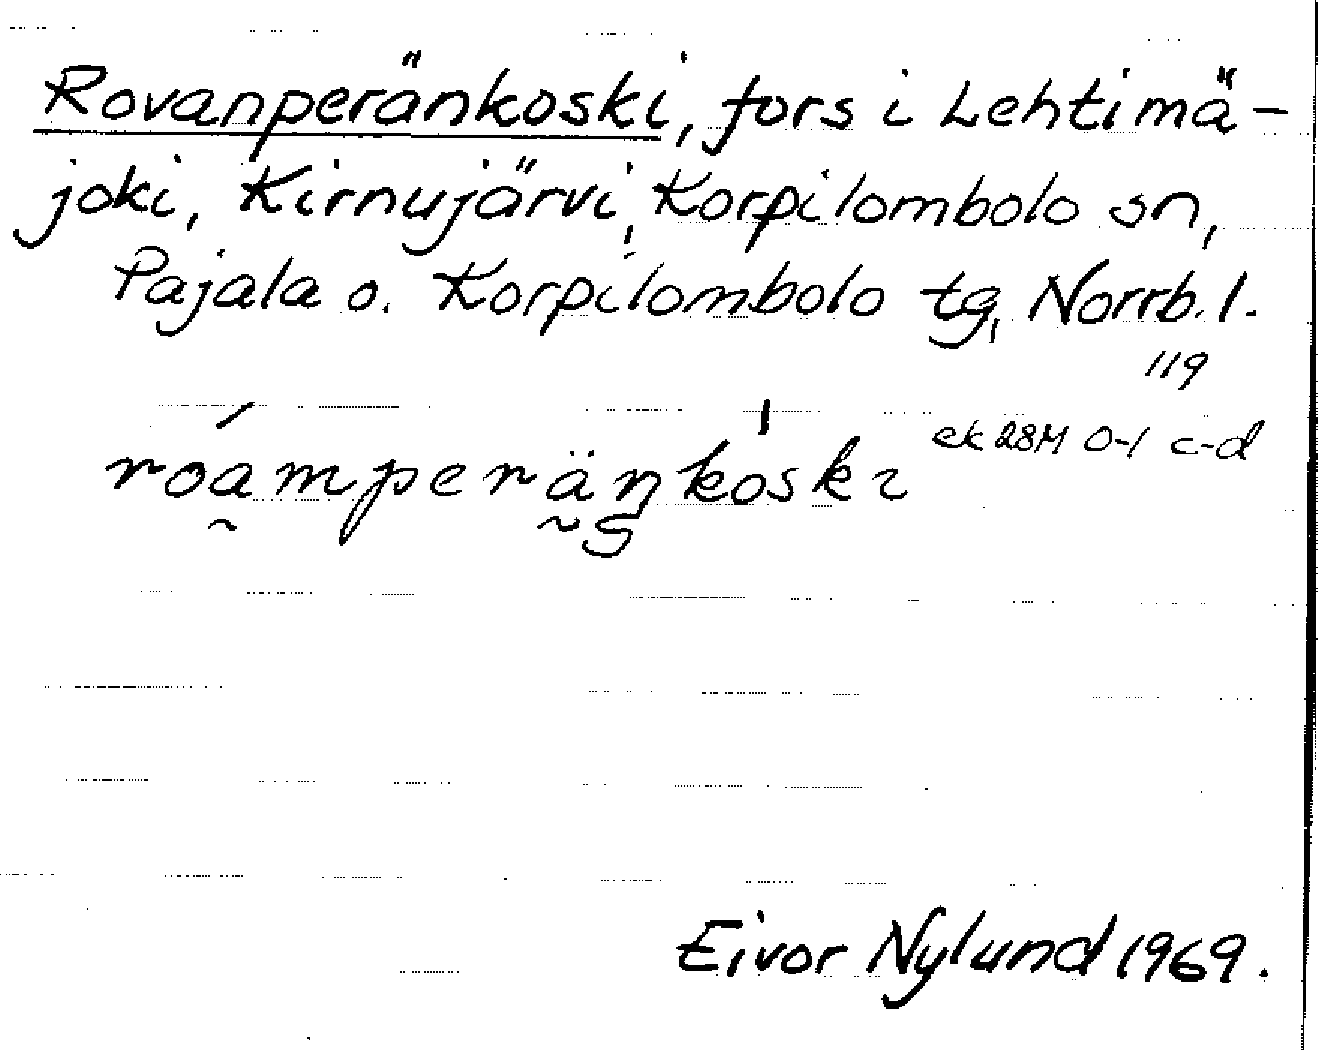 Rovanperänkoski, fors i Lehtimä-
joki, Kirnujärvi, Korpilombolo sn,
Pajala o. Korpilombolo tg, Norrb. l.
119
ek 28M 0-1 c-d
roámperäŋkòski
Eivor Nylund 1969.